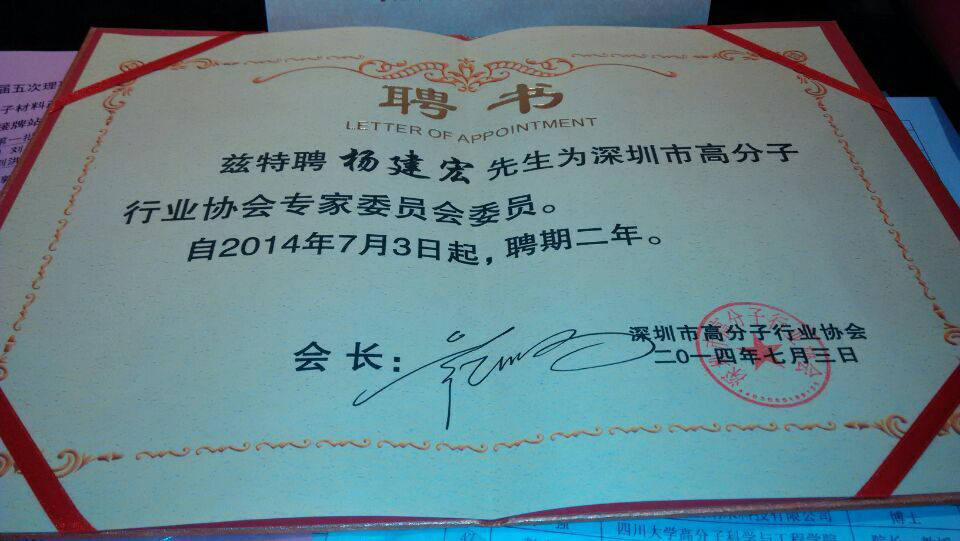 聘书
LETTER OF APPOINTMENT
兹特聘 杨建宏 先生为深圳市高分子
行业协会专家委员会委员。
自2014年7月3日起，聘期二年。
会长：
深圳市高分子行业协会
二〇一四年七月三日
届五次理
子材料
接牌站
第一批
四川大学高分子科学与工程学院
博士